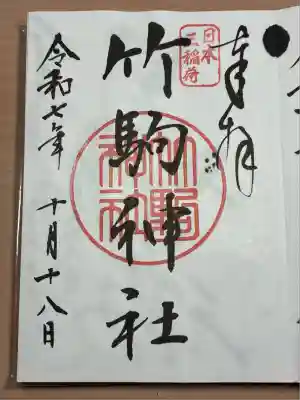 奉拝
日本
三稲荷
竹駒神社
竹駒
神社
令和七年 十月十八日